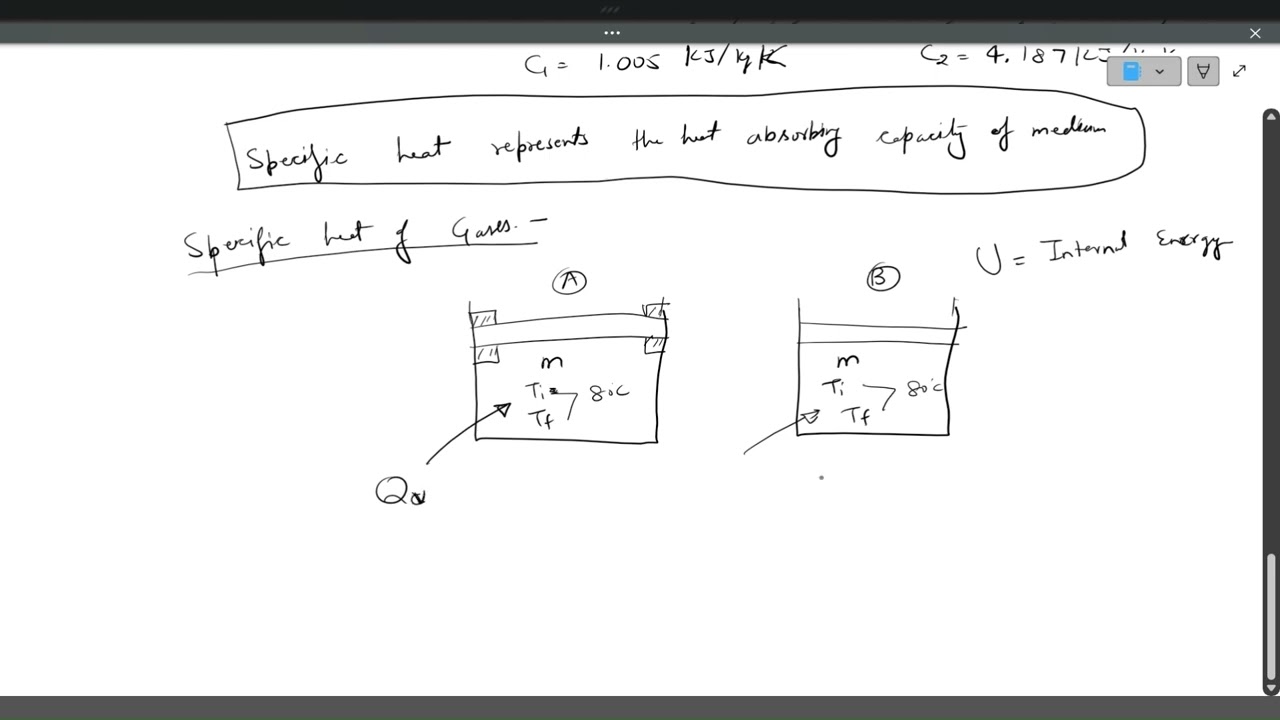 C1 = 1.005 KJ/kgK C2 = 4.187 KJ/
Specific heat represents the heat absorbing capacity of medium
Specific heat of Gases. -
U = Internal Energy
A B
m m
Ti Ti
80°C 80°C
Tf Tf
Qv